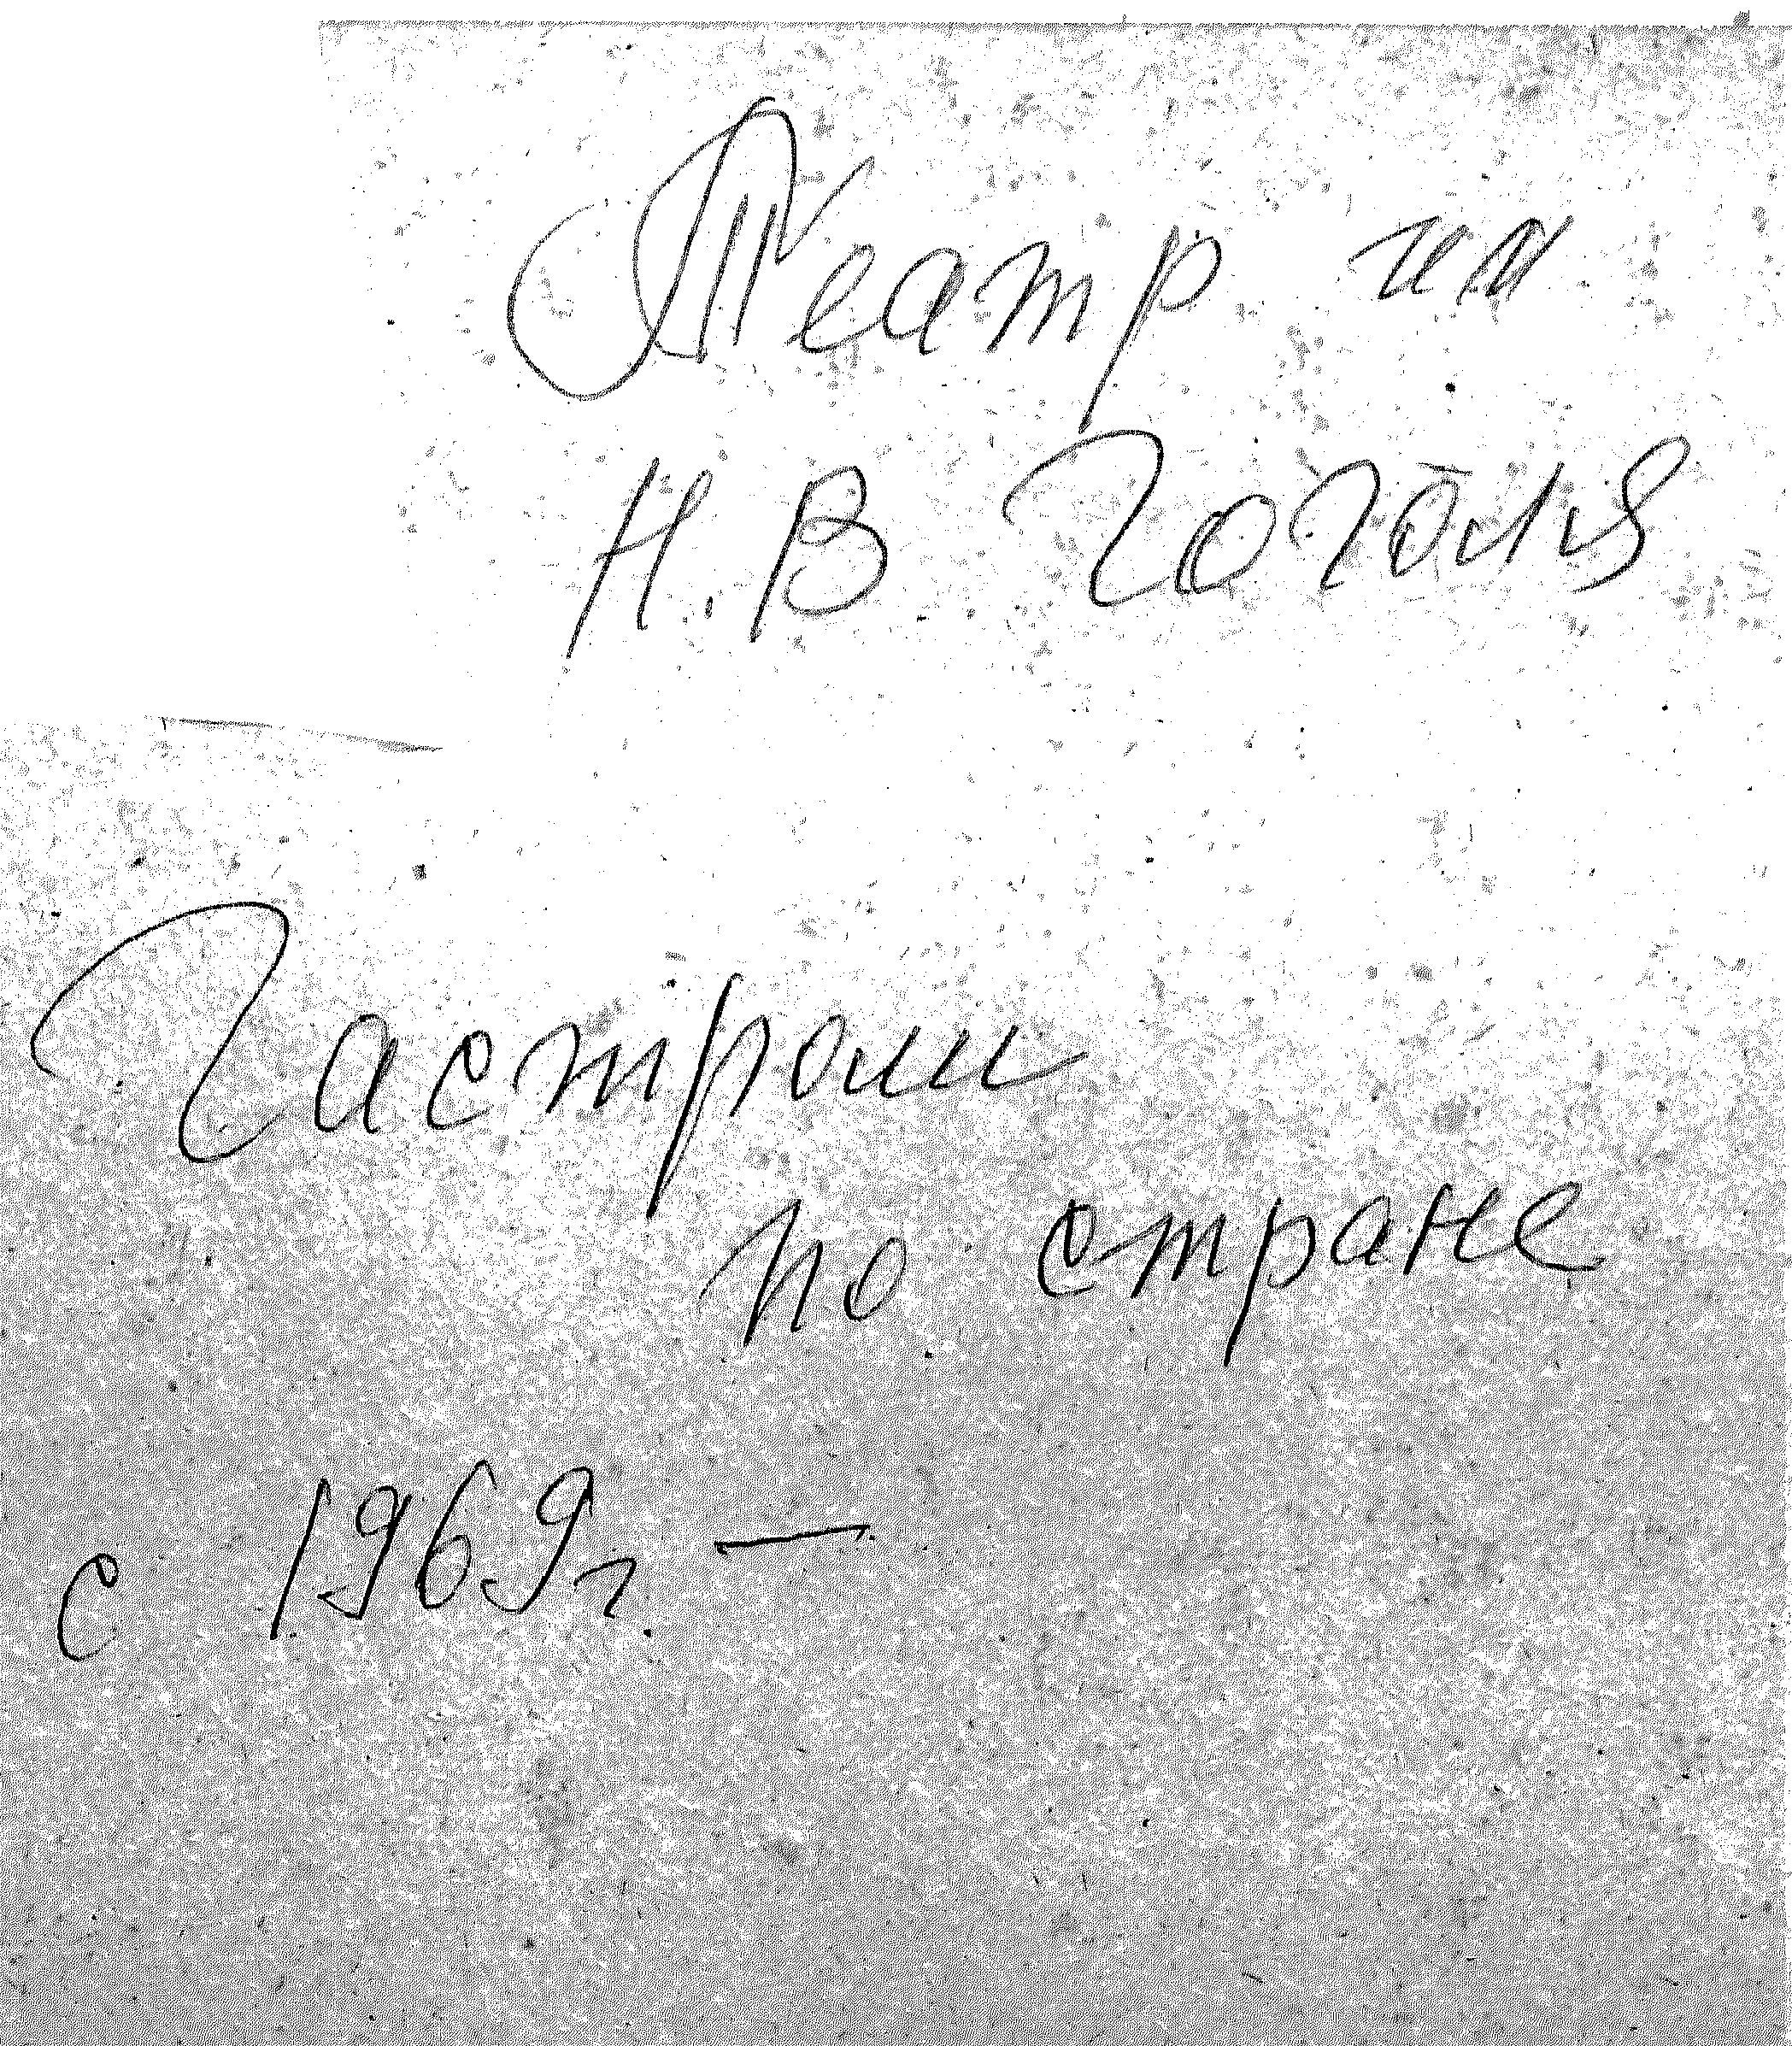 Театр им
Н.В Гоголя
Гастроли
по стране
с 1969г. —